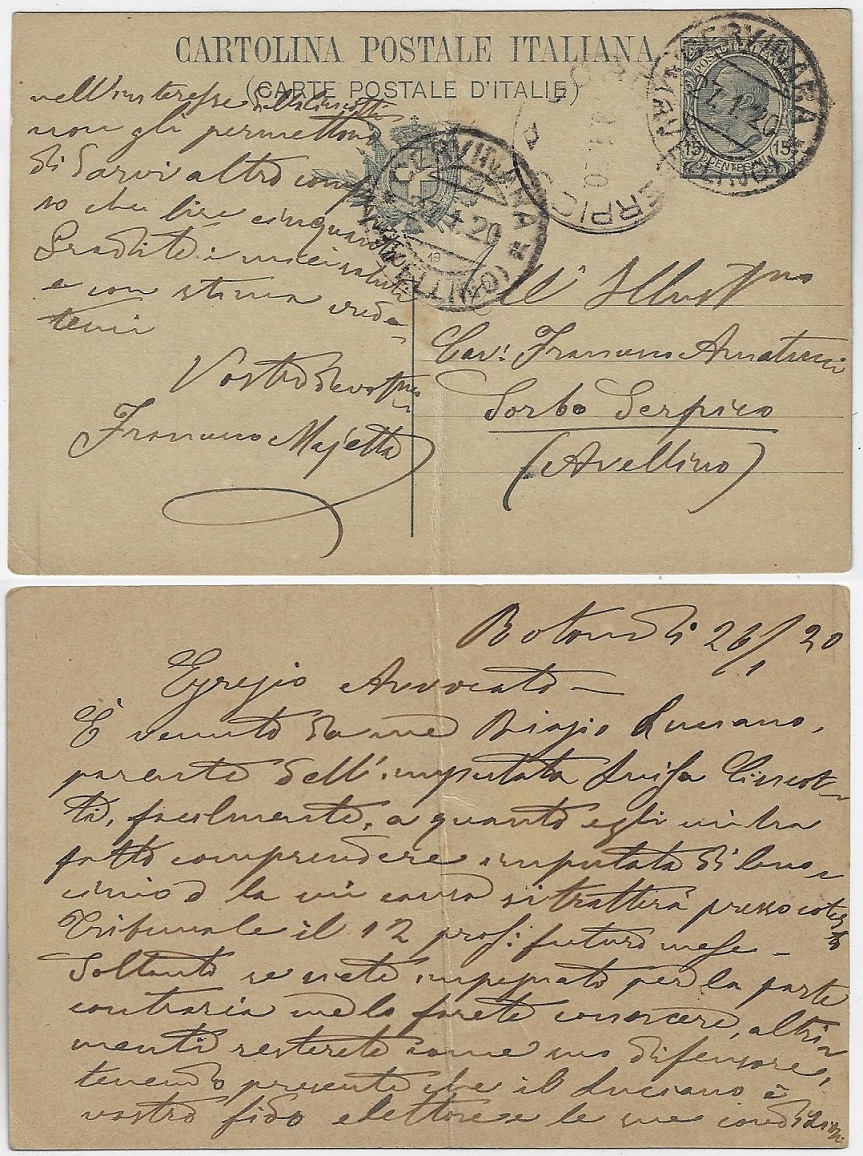 CARTOLINA POSTALE ITALIANA
(CARTE POSTALE D'ITALIE)
POSTE ITALIANE
15 CENTESIMI 15
CERVINARA
27.1.20
(AVELLINO)
CERVINARA
27.1.20
19
(AVELLINO)
SERPICO
nell'interesse della Ciccotti
non gli permettono
di darvi altro compen
so che lire cinquanta
Gradite i miei saluti
e con stima crede-
temi
Vostro devotmo
Francesco Majetta
All'Illustmo
Cav. Francesco Amatucci
Sorbo Serpico
(Avellino)
Rotondi 26/1 20
Egregio Avvocato -
È venuto da me Biagio Luciano,
parente dell'imputata Luisa Ciccot-
ti, facilmente, a quanto egli mi ha
fatto comprendere imputata di leno-
cinio la cui causa si tratterà presso cotesto
Tribunale il 12 pros: futuro mese -
Soltanto se siete impegnato per la parte
contraria me lo farete conoscere, altri-
menti resterete come suo difensore,
tenendo presente che il Luciano è
vostro fido elettore e le sue condizioni